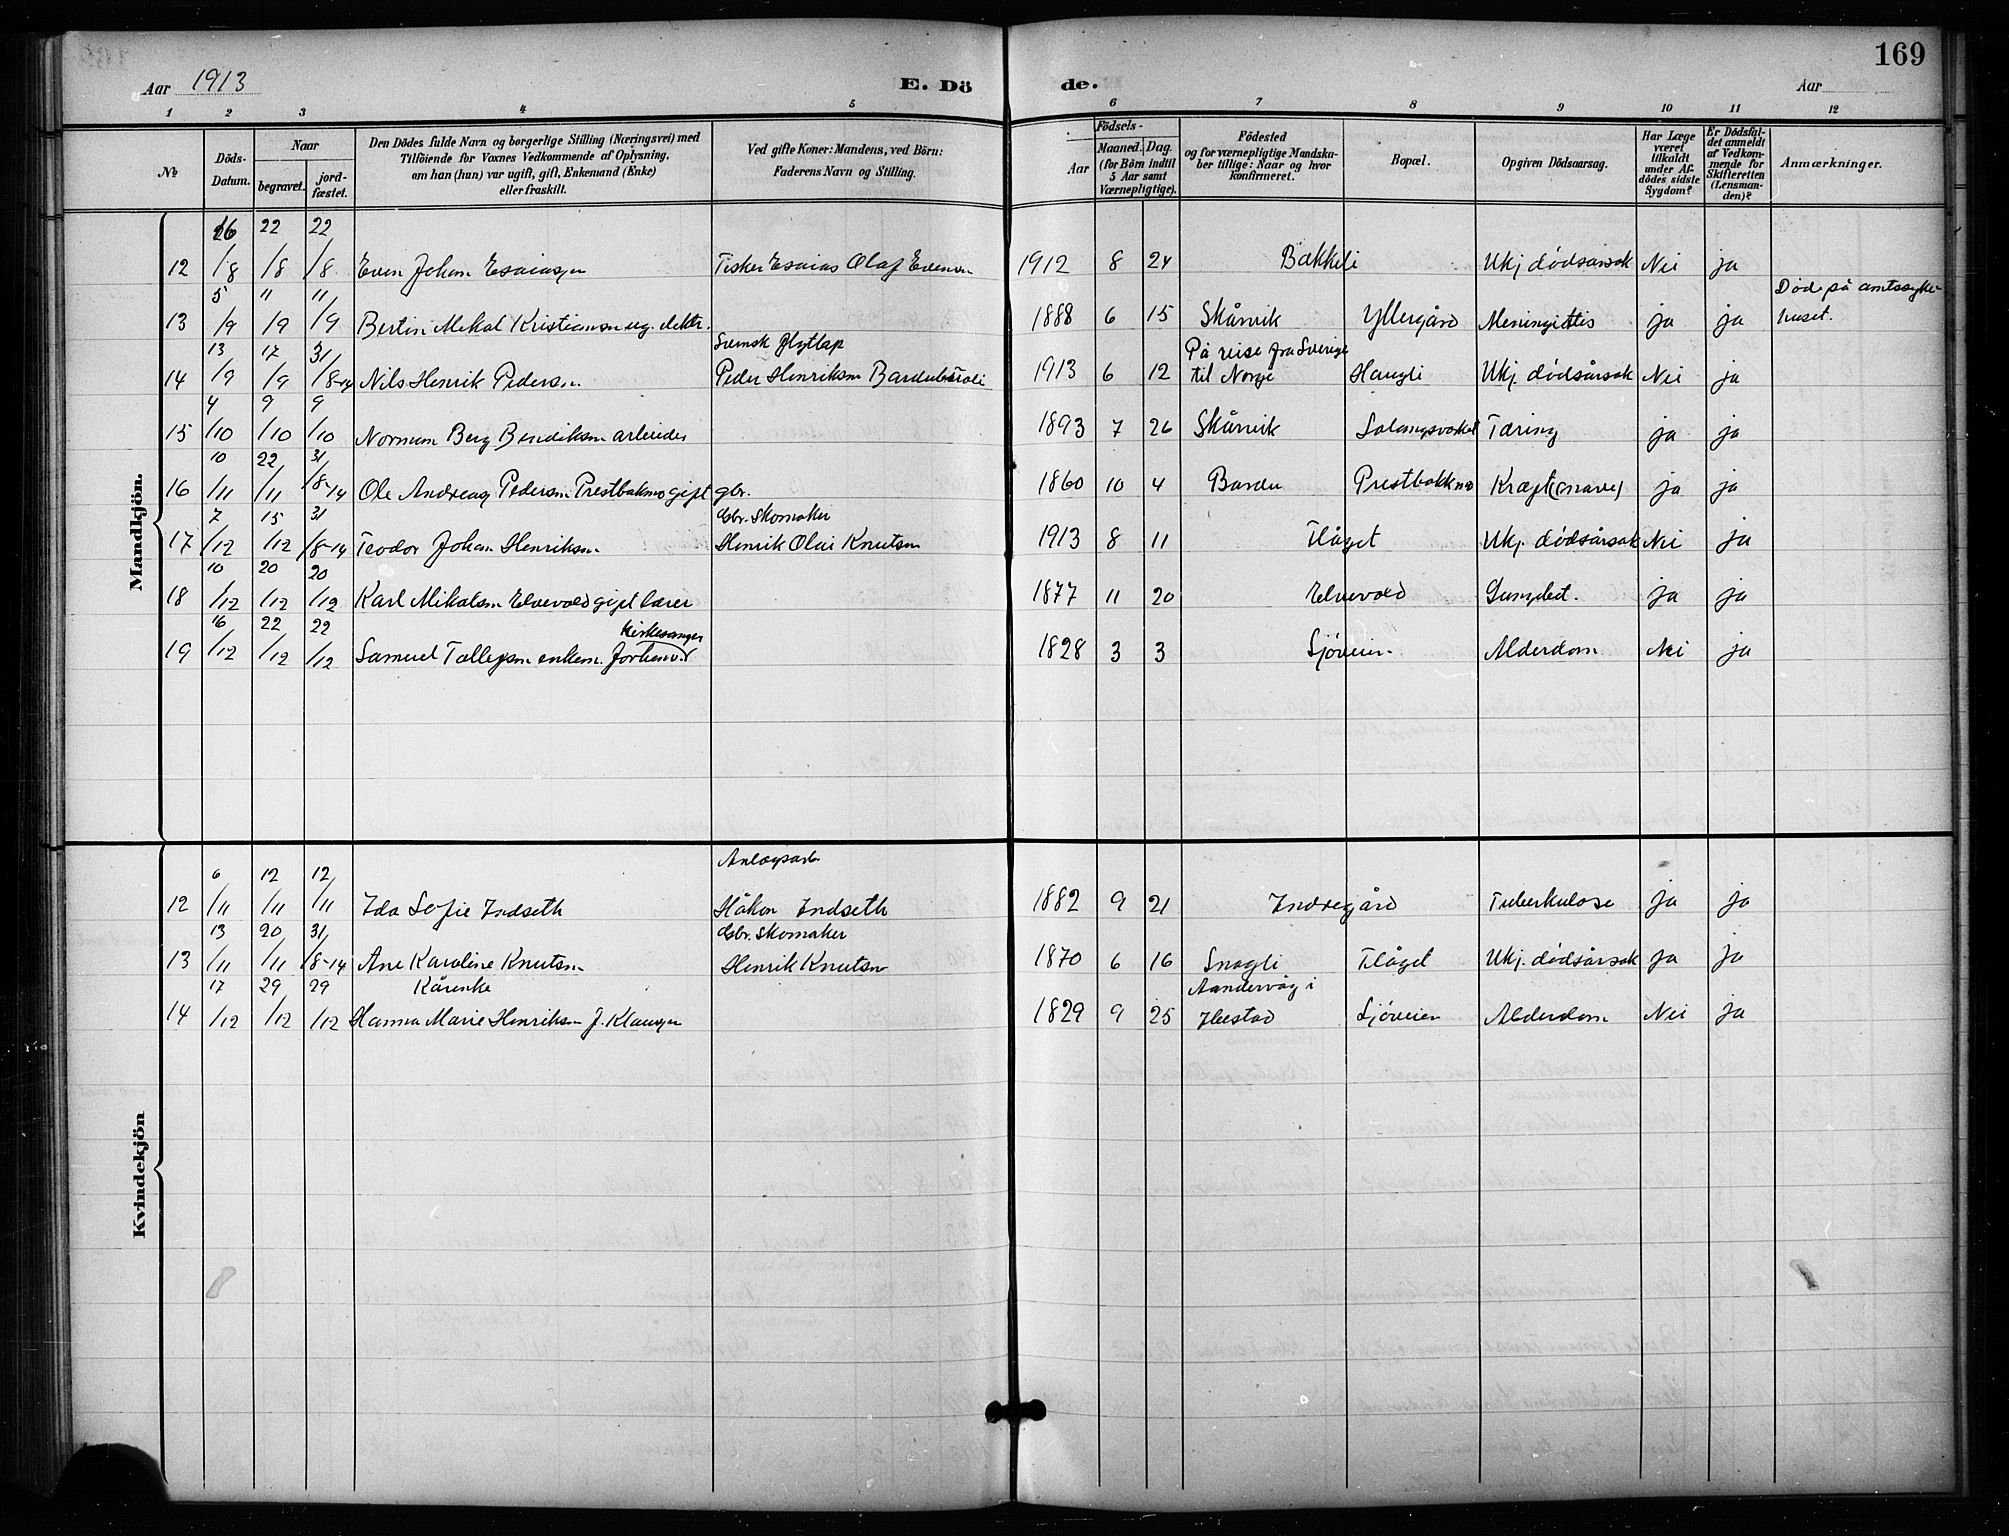 169
Aar 1913
E. Dö de.
Aar
1 2 3 4 5 6 7 8 9 10 11 12
№
Döds-Datum.
Naar
begravet.
jord-fæstet.
Den Dödes fulde Navn og borgerlige Stilling (Næringsvei) med
Tilföiende for Voxnes Vedkommende af Oplysning,
om han (hun) var ugift, gift, Enkemand (Enke)
eller fraskilt.
Ved gifte Koner: Mandens, ved Börn:
Faderens Navn og Stilling.
Födsels-
Aar
Maaned. Dag.
(for Börn indtil
5 Aar samt
Værnepligtige).
Födested
og for værnepligtige Mandska-
ber tillige: Naar og hvor
konfirmeret.
Bopæl.
Opgiven Dödsaarsag.
Har Læge
været
tilkaldt
under Af-
dödes sidste
Sygdom?
Er Dödsfal-
det anmeldt
af Vedkom-
mende for
Skifteretten
(Lensman-
den)?
Anmærkninger.
Mandkjön.
12 26/8 22/8 22/8 Even Johan Esaiasen Fisker Esaias Olaf Evensen 1912 8 24 Bakkeli Ukj dødsårsak Nei ja
13 5/9 11/9 11/9 Bertin Mikal Kristiansen ug. 1888 6 15 Skårvik Yllergård Meningittis ja ja Død på amtssyke-
huset.
Svensk flytlap
På reise fra Sverige
14 13/9 17/9 31/8-14 Nils Henrik Pedersn Peder Henriksn 1913 6 12 til Norge Haugli Ukj. dødsårsak Nei ja
15 4/10 9/10 9/10 Norman Berg Bendiksn arbeider 1893 7 26 Skårvik Salangsverket Tæring ja ja
16 10/11 22/11 31/8-14 Ole Andreas Pedersn Prestbakmo gift gbr. 1860 10 4 Bardu Prestbakkmo Kræft (mave) ja ja
Gbr. Skomaker
17 7/12 15/12 31/8-14 Teodor Johan Henriksn Henrik Olai Knutsn 1913 8 11 Flåget Ukj. dødsårsak Nei ja
18 10/12 20/12 20/12 Karl Mikalsn Elvevold gift lærer 1877 11 20 Elvevold Lungebet. ja ja
kirkesanger
19 16/12 22/12 22/12 Samuel Tollefsn enkem. Forhenv. 1828 3 3 Sjøveien Alderdom Nei ja
Kvindekjön
Anlægsarb.
12 6/11 12/11 12/11 Ida Sofie Indseth Håkon Indseth 1882 9 21 Indregård Tuberkulose ja ja
Gbr. Skomaker
13 13/11 20/11 31/8-14 Ane Karoline Knutsn Henrik Knutsn 1870 6 16 Snogli Flåget Ukj. dødsårsak ja ja
Kårenke Aandervåg i
14 17/12 29/12 29/12 Hanna Marie Henriksn J. Klausen 1829 9 25 Ibestad Sjøveien Alderdom Nei ja